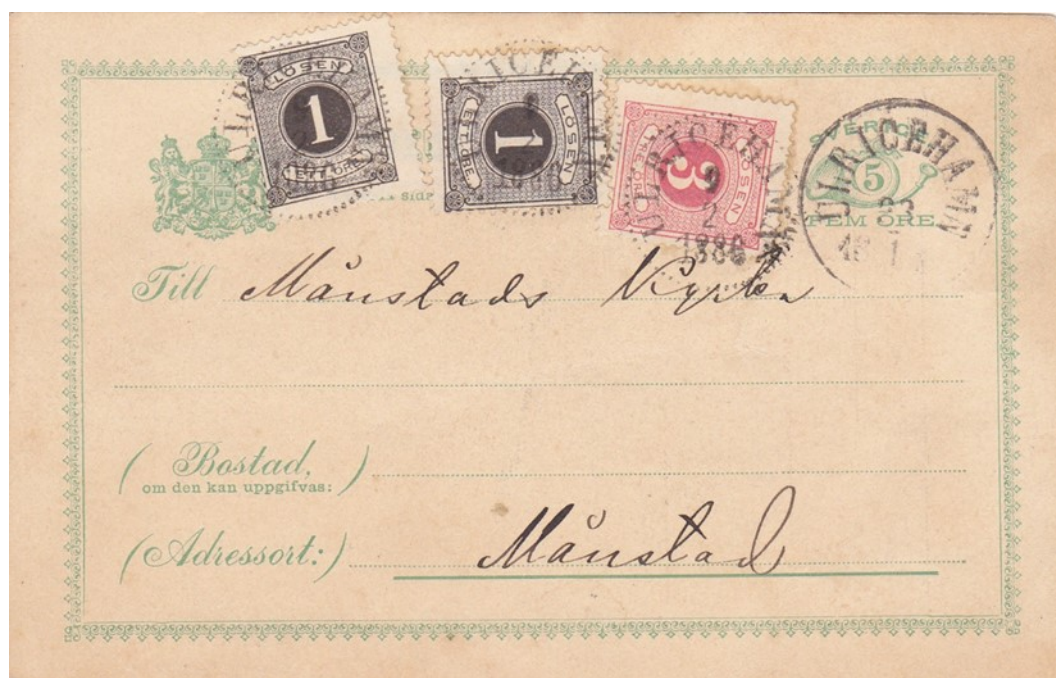 LÖSEN
1
ETT ÖRE
LÖSEN
1
ETT ÖRE
LÖSEN
3
TRE ÖRE
ULRICEHAMN
9
2
1886
SVERIGE
5
FEM ÖRE
ULRICEHAMN
Till Månstads
(Bostad,
om den kan uppgifvas:)
(Adressort:) Månstad